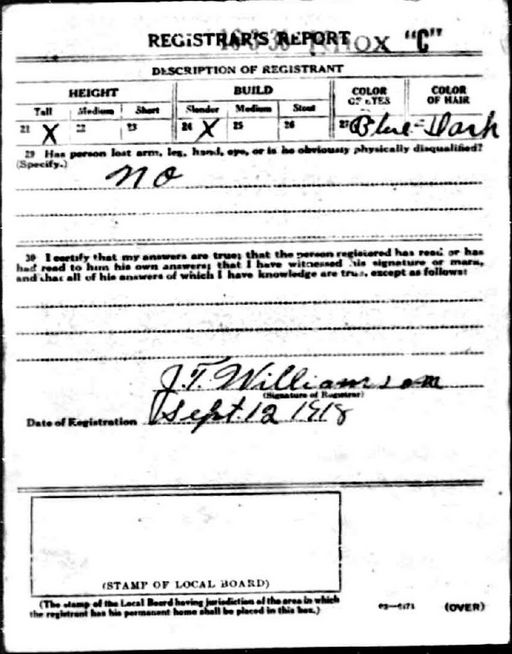 REGISTRAR'S REPORT "C"
DESCRIPTION OF REGISTRANT
HEIGHT BUILD COLOR OF EYES COLOR OF HAIR
Tall Medium Short Slender Medium Stout
21 X 22 23 24 X 25 26 27 Blue Dark
29 Has person lost arm, leg, hand, eye, or is he obviously physically disqualified?
(Specify.)
No
30 I certify that my answers are true; that the person registered has read or has
had read to him his own answers; that I have witnessed his signature or mark,
and that all of his answers of which I have knowledge are true, except as follows:
J.T. Williamson
(Signature of Registrar)
Date of Registration Sept. 12 1918
(STAMP OF LOCAL BOARD)
(The stamp of the Local Board having jurisdiction of the area in which
the registrant has his permanent home shall be placed in this box.)
(OVER)